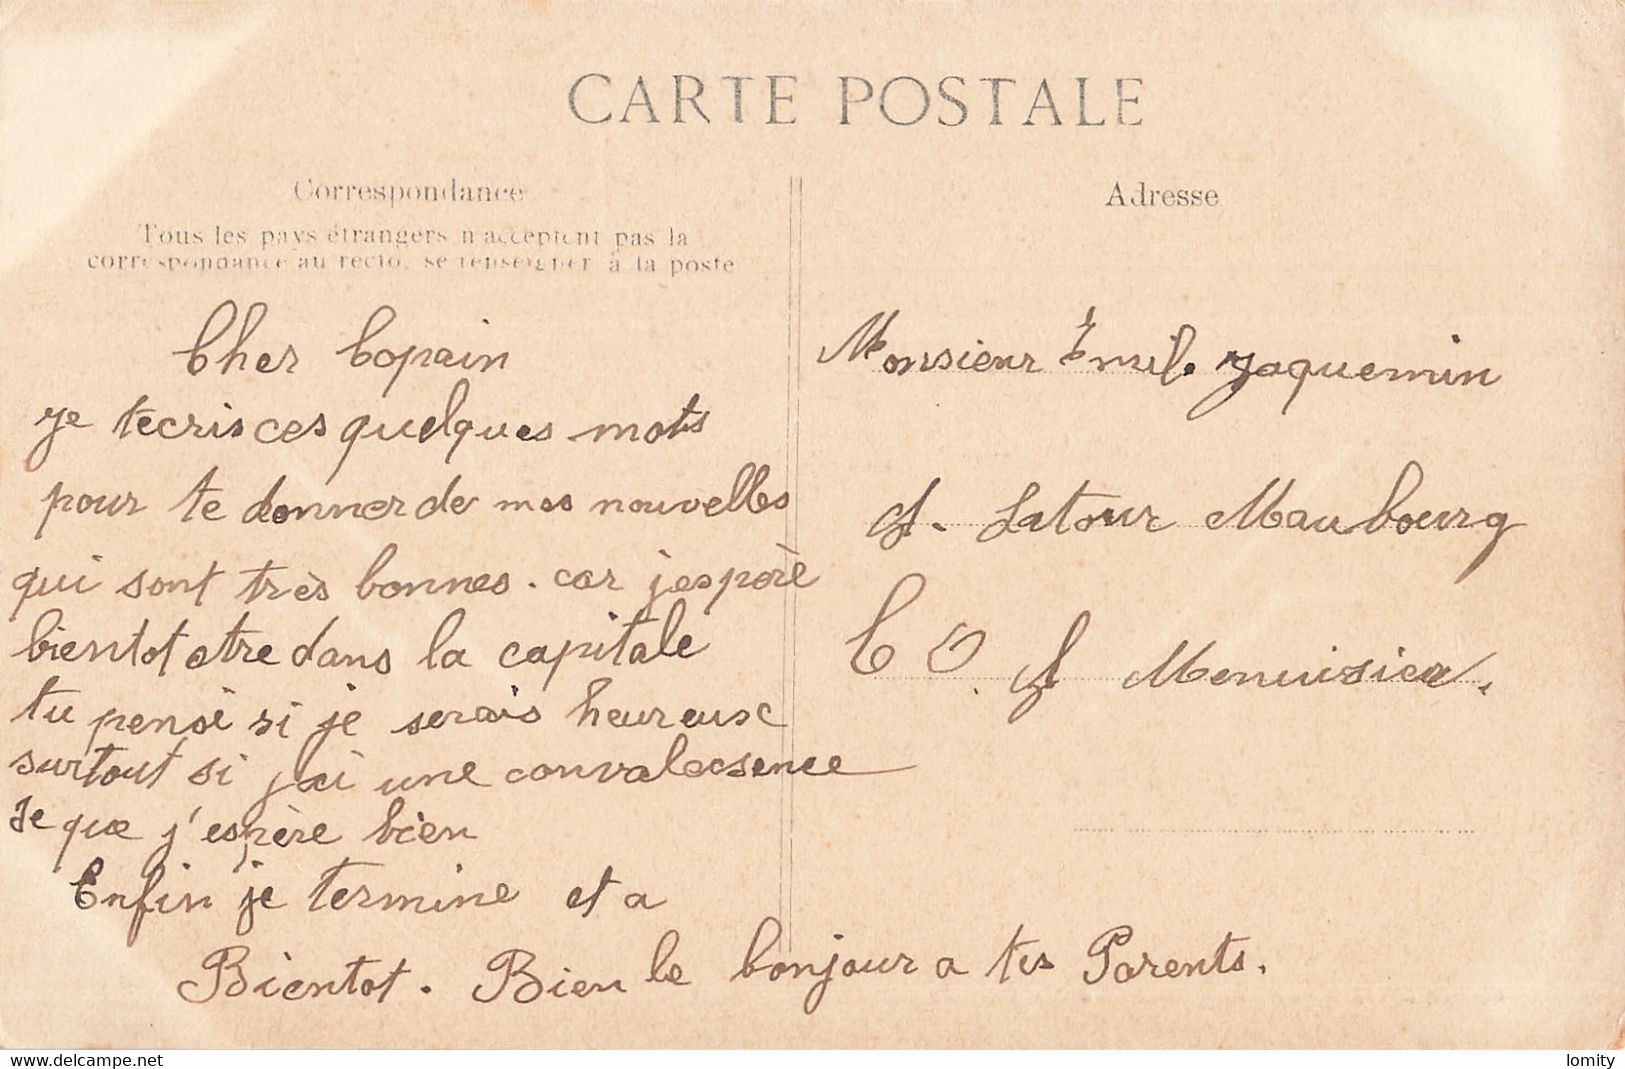 CARTE POSTALE
Correspondance
Tous les pays étrangers n'acceptent pas la
correspondance au recto, se renseigner à la poste
Cher Copain
je tecris ces quelques mots
pour te donner de mes nouvelles
qui sont très bonnes. car j'esperè
bientot etre dans la capitale
tu pense si je serais heureuse
surtout si j'ai une convalecsence
Je que j'espère bien
Enfin je termine et a
Bientot. Bien le bonjour a tes Parents.
Adresse
Monsieur Emil. Jaquemin
A. Latour Maubourg
C O. A Menuisier.
delcampe.net
lomity